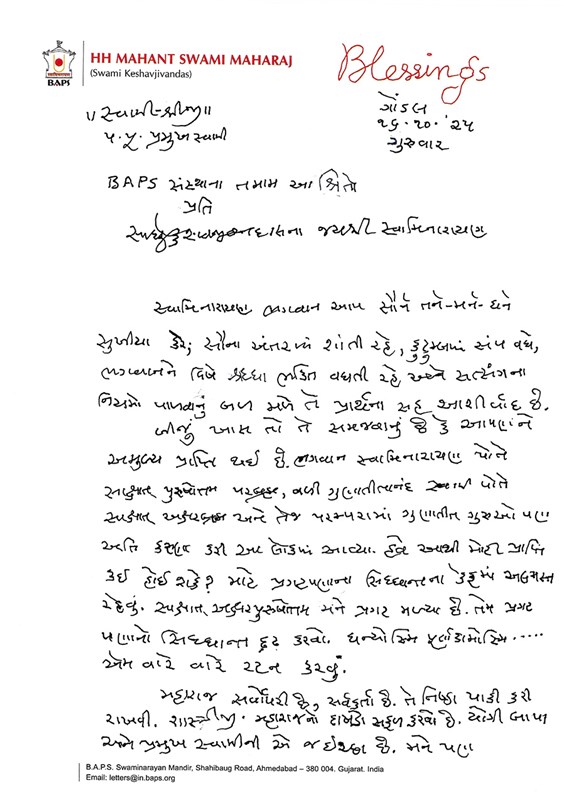 HH MAHANT SWAMI MAHARAJ
(Swami Keshavjivandas)
BAPS
Blessings
॥ સ્વામિ-શ્રીજી ॥
પ. પૂ. પ્રમુખ સ્વામી
ગોંડલ
૧૬.૧૦.'૨૫
ગુરુવાર
BAPS સંસ્થાના તમામ આશ્રિતો
પ્રતિ
સાધુ જીવનદાસના જયશ્રી સ્વામિનારાયણ
સ્વામિનારાયણ ભગવાન આપ સૌને તને-મને-ધને
સુખીયા કરે; સૌના અંતરમાં શાંતી રહે, કુટુમ્બમાં સંપ વધે,
ભગવાનને વિષે શ્રદ્ધા ભક્તિ વધતી રહે અને સત્સંગના
નિયમો પાળવાનું બળ મળે તે પ્રાર્થના સહ આશીર્વાદ છે.
બીજું ખાસ તો તે સમજવાનું છે કે આપણને
અમુલ્ય પ્રાપ્તિ થઈ છે. ભગવાન સ્વામિનારાયણ પોતે
સાક્ષાત્ પુરુષોત્તમ પરબ્રહ્મ, વળી ગુણાતીતાનંદ સ્વામી પોતે
સાક્ષાત્ અક્ષરબ્રહ્મ અને તેજ પરમ્પરામાં ગુણાતીત ગુરુઓ પણ
અતિ કરુણા કરી આ લોકમાં આવ્યા. હવે આથી મોટી પ્રાપ્તિ
કઈ હોઈ શકે? માટે પ્રગટપણાના સિધ્ધાન્તના કેફમાં અલમસ્ત
રહેવું. સાક્ષાત્ અક્ષરપુરુષોત્તમ મને પ્રગટ મળ્યા છે. તેમ પ્રગટ
પણાનો સિધ્ધાન્ત દ્રઢ કરવો. ધન્યોસ્મિ પૂર્ણકામોસ્મિ .....
એમ વારે વારે રટન કરવું.
મહારાજ સર્વોપરી છે, સર્વકર્તા છે. તે નિષ્ઠા પાકી કરી
રાખવી. શાસ્ત્રીજી મહારાજનો દાખડો સફળ કરવો છે. યોગી બાપા
અને પ્રમુખ સ્વામીની એ જ ઇચ્છા છે. મને પણ
B.A.P.S. Swaminarayan Mandir, Shahibaug Road, Ahmedabad – 380 004. Gujarat. India
Email: letters@in.baps.org